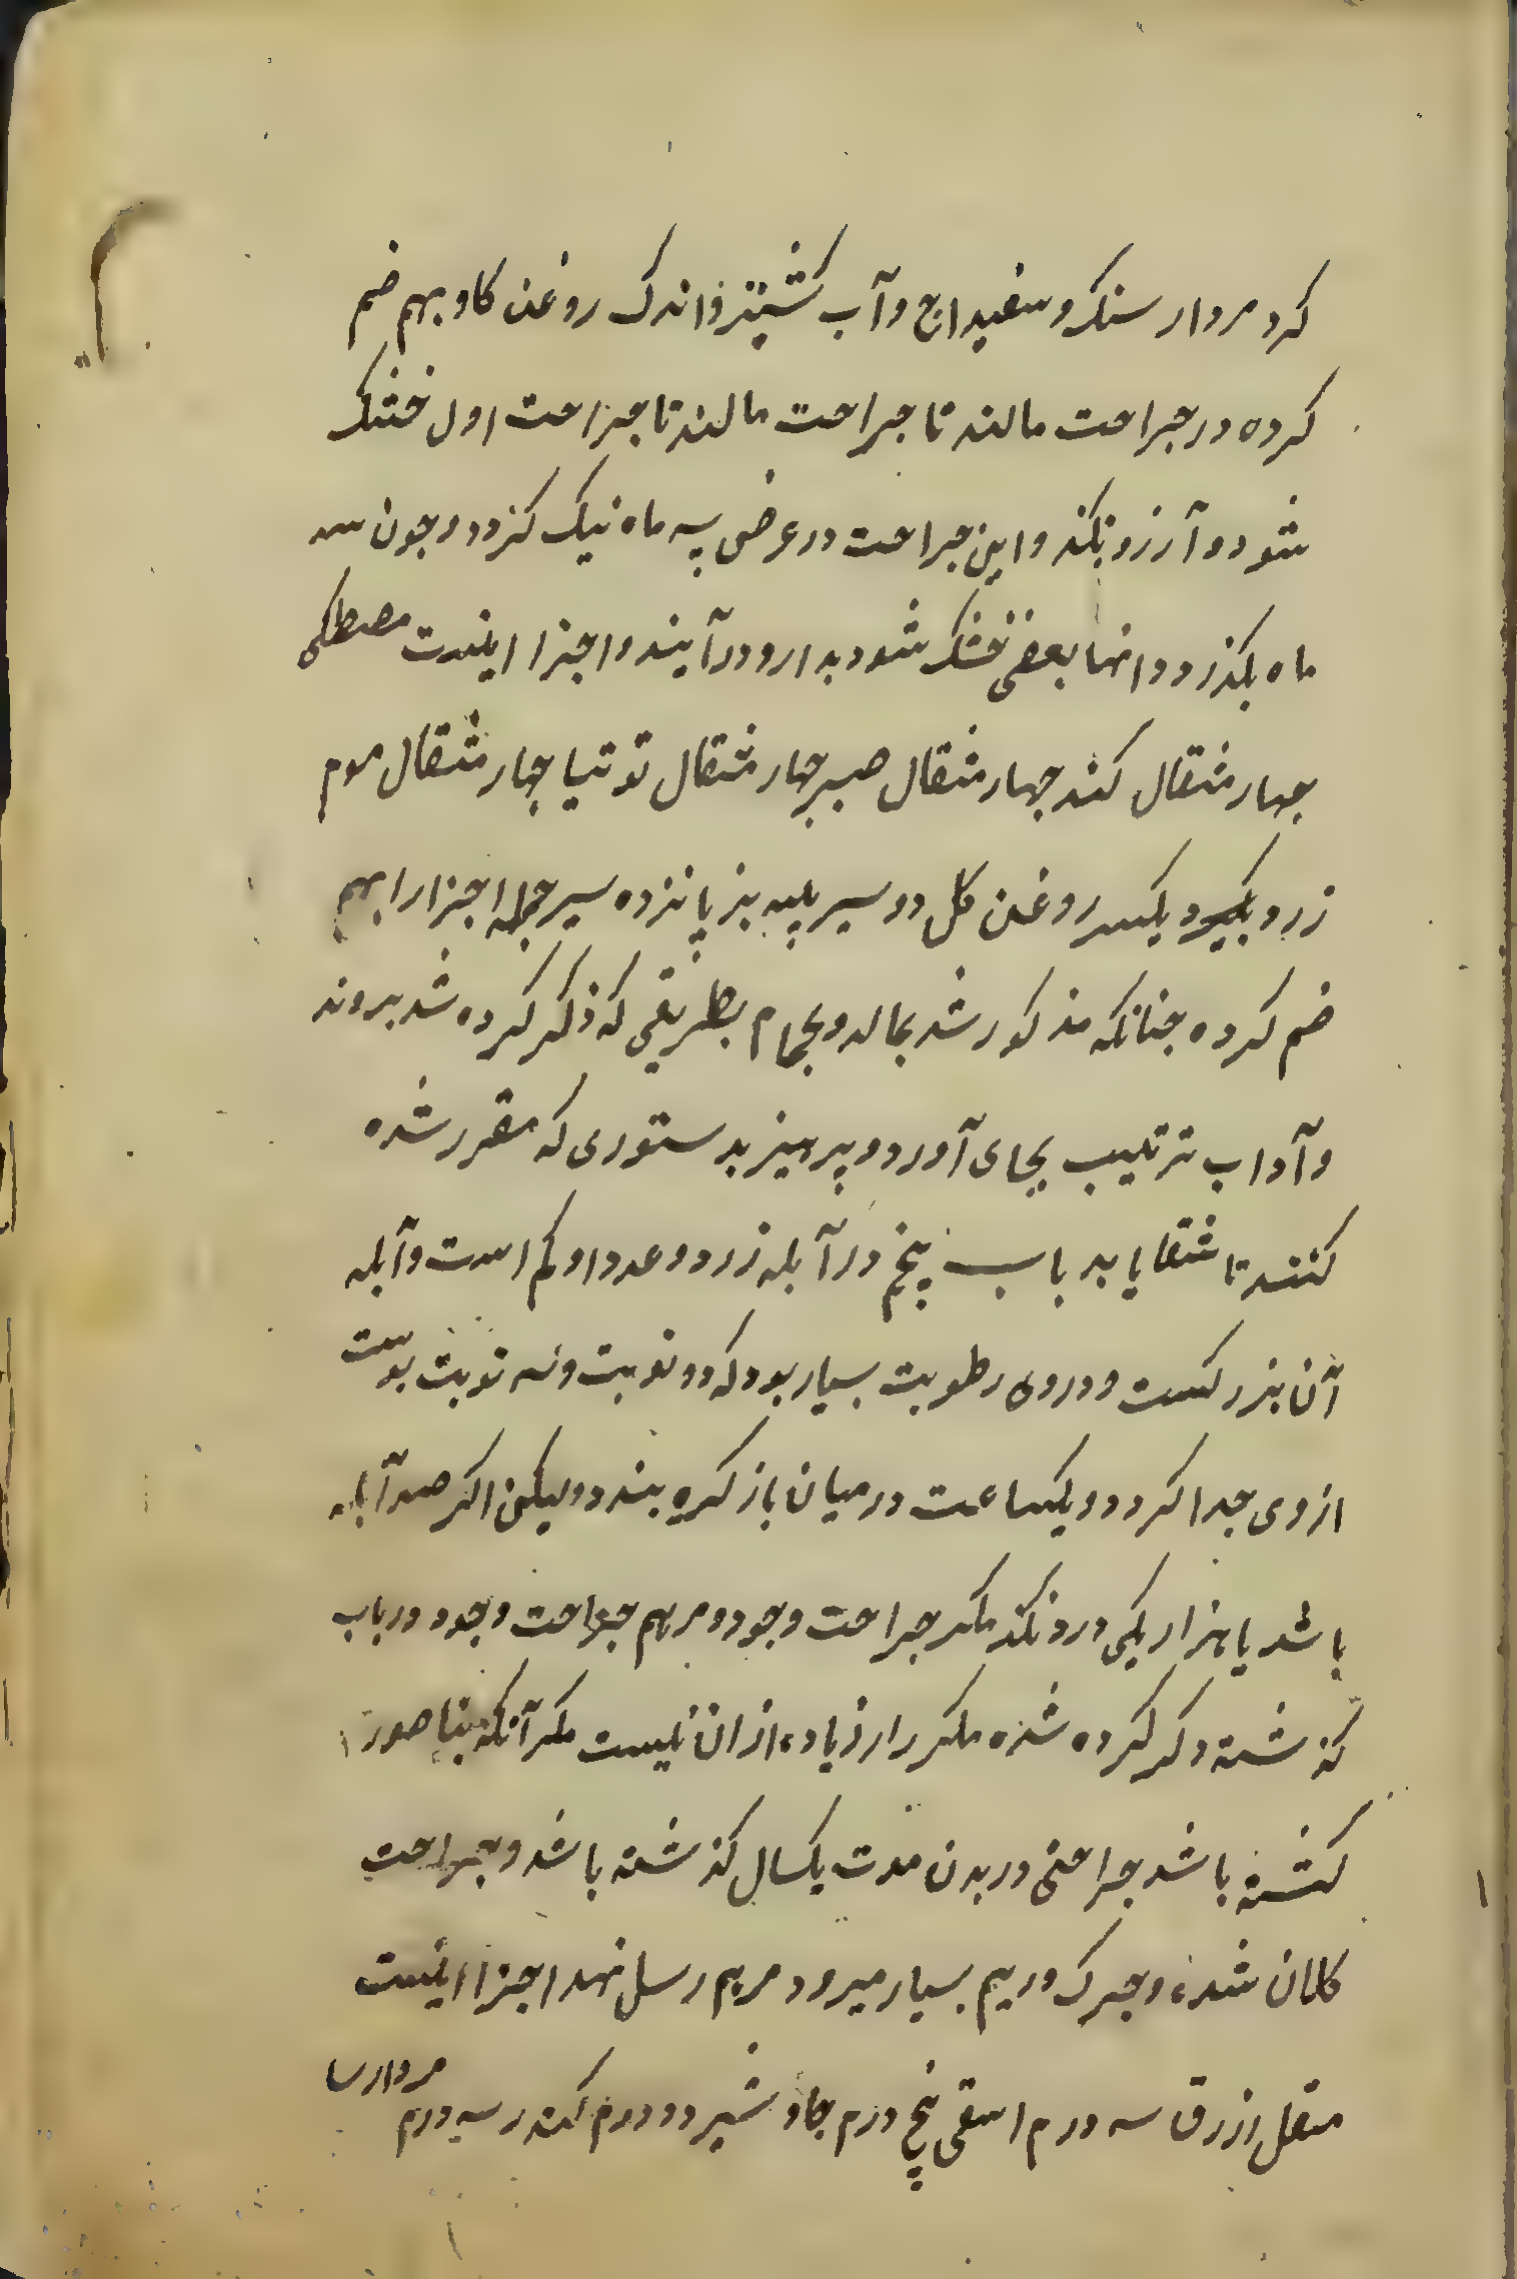 کرد مردار سنک و سفیداج و آب کشنیز و اندک روغن کاو بهم ضم
کرده در جراحت مالند تا جراحت مالند تا جراحت اول خشک
شود و آرزو نکند و این جراحت در عرض سه ماه نیک کردد و چون سه
ماه بکذرد و انها بعضی خشک شود بدارو درآیند و اجزا اینست مصطکی
چهار مثقال کندر چهار مثقال صبر چهار مثقال توتیا چهار مثقال موم
زرد یکسر روغن کل دو سیر پیه بز پانزده سیر جمله اجزا را بهم
ضم کرده چنانکه مذکور شد بمالد و بحمام بطریقی که ذکر کرده شد بروند
و آداب ترتیب بجای آورد و پرهیز بدستوری که مقرر شده
کنند تا شفا یابد باب پنجم در آبله زرد و عدد او کم است و آبله
آن بزرکست و در وی رطوبت بسیار بود که دو نوبت و سه نوبت پوست
از وی جدا کردد و یکساعت در میان باز کره بندد و لیکن اکر صد آبله
باشد یا هزار یکی درد نکند مکر جراحت وجود و مرهم جراحت وجود در باب
کذشته ذکر کرده شده مکرر از زیاده ازان نیست مکر آنکه بناصور
کشته باشد جراحتی در بدن مدت یکسال کذشته باشد و جراحت
کلان شده و چرک و ریم بسیار میرود مرهم رسل نهد اجزا اینست
مقل ازرق سه درم اشق پنج درم جاوشیر دو درم کندر سه درم مردارسا